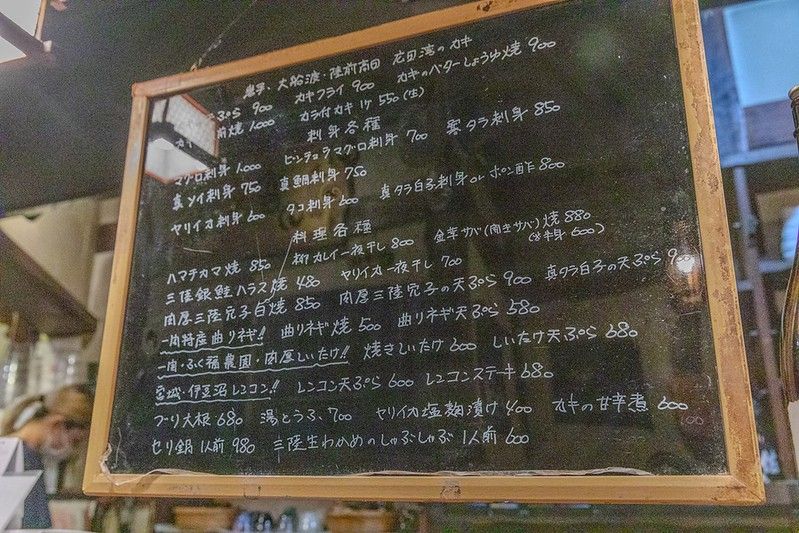 岩手・大船渡・陸前高田 広田湾のカキ
天ぷら 900 カキフライ 900 カキのバターしょうゆ焼 900
焼 1,000 カラ付カキ 1ケ 550 (生)
刺身各種
マグロ刺身 1,000 ビンチョウマグロ刺身 700 真タラ刺身 850
真ソイ刺身 750 真鯛刺身 750
ヤリイカ刺身 600 タコ刺身 600 真タラ白子刺身 or ポン酢 800
料理各種
ハマチカマ焼 850 柳カレイ一夜干し 800 金華サバ(開きサバ)焼 880
(半身 600)
三陸銀鮭ハラス焼 480 ヤリイカ一夜干し 700
肉厚三陸穴子白焼 850 肉厚三陸穴子の天ぷら 900 真タラ白子の天ぷら 900
一関特産曲りネギ!! 曲りネギ焼 500 曲りネギ天ぷら 580
一関・ふく福農園・肉厚しいたけ!! 焼きしいたけ 600 しいたけ天ぷら 680
宮城・伊豆沼レンコン!! レンコン天ぷら 600 レンコンステーキ 680
ブリ大根 680 湯とうふ 700 ヤリイカ塩麹漬け 400 カキの甘辛煮 600
セリ鍋 1人前 980 三陸生わかめのしゃぶしゃぶ 1人前 600